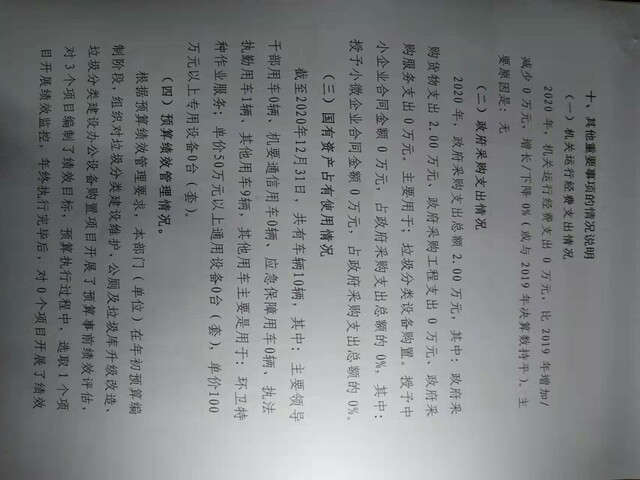 十、其他重要事项的情况说明
（一）机关运行经费支出情况
2020 年，机关运行经费支出 0 万元，比 2019 年增加/
减少 0 万元，增长/下降 0%（或与 2019 年决算数持平）。主
要原因是：无
（二）政府采购支出情况
2020 年，政府采购支出总额 2.00 万元，其中：政府采
购货物支出 2.00 万元、政府采购工程支出 0 万元、政府采
购服务支出 0 万元。主要用于：垃圾分类设备购置。授予中
小企业合同金额 0 万元，占政府采购支出总额的 0%，其中：
授予小微企业合同金额 0 万元，占政府采购支出总额的 0%。
（三）国有资产占有使用情况
截至2020年12月31日，共有车辆10辆，其中：主要领导
干部用车0辆、机要通信用车0辆、应急保障用车0辆、执法
执勤用车1辆，其他用车9辆，其他用车主要是用于：环卫特
种作业服务；单价50万元以上通用设备0台（套），单价100
万元以上专用设备0台（套）。
（四）预算绩效管理情况。
根据预算绩效管理要求，本部门（单位）在年初预算编
制阶段，组织对垃圾分类建设维护、公厕及垃圾库升级改造、
垃圾分类建设办公设备购置项目开展了预算事前绩效评估，
对 3 个项目编制了绩效目标，预算执行过程中，选取 1 个项
目开展绩效监控，年终执行完毕后，对 0 个项目开展了绩效